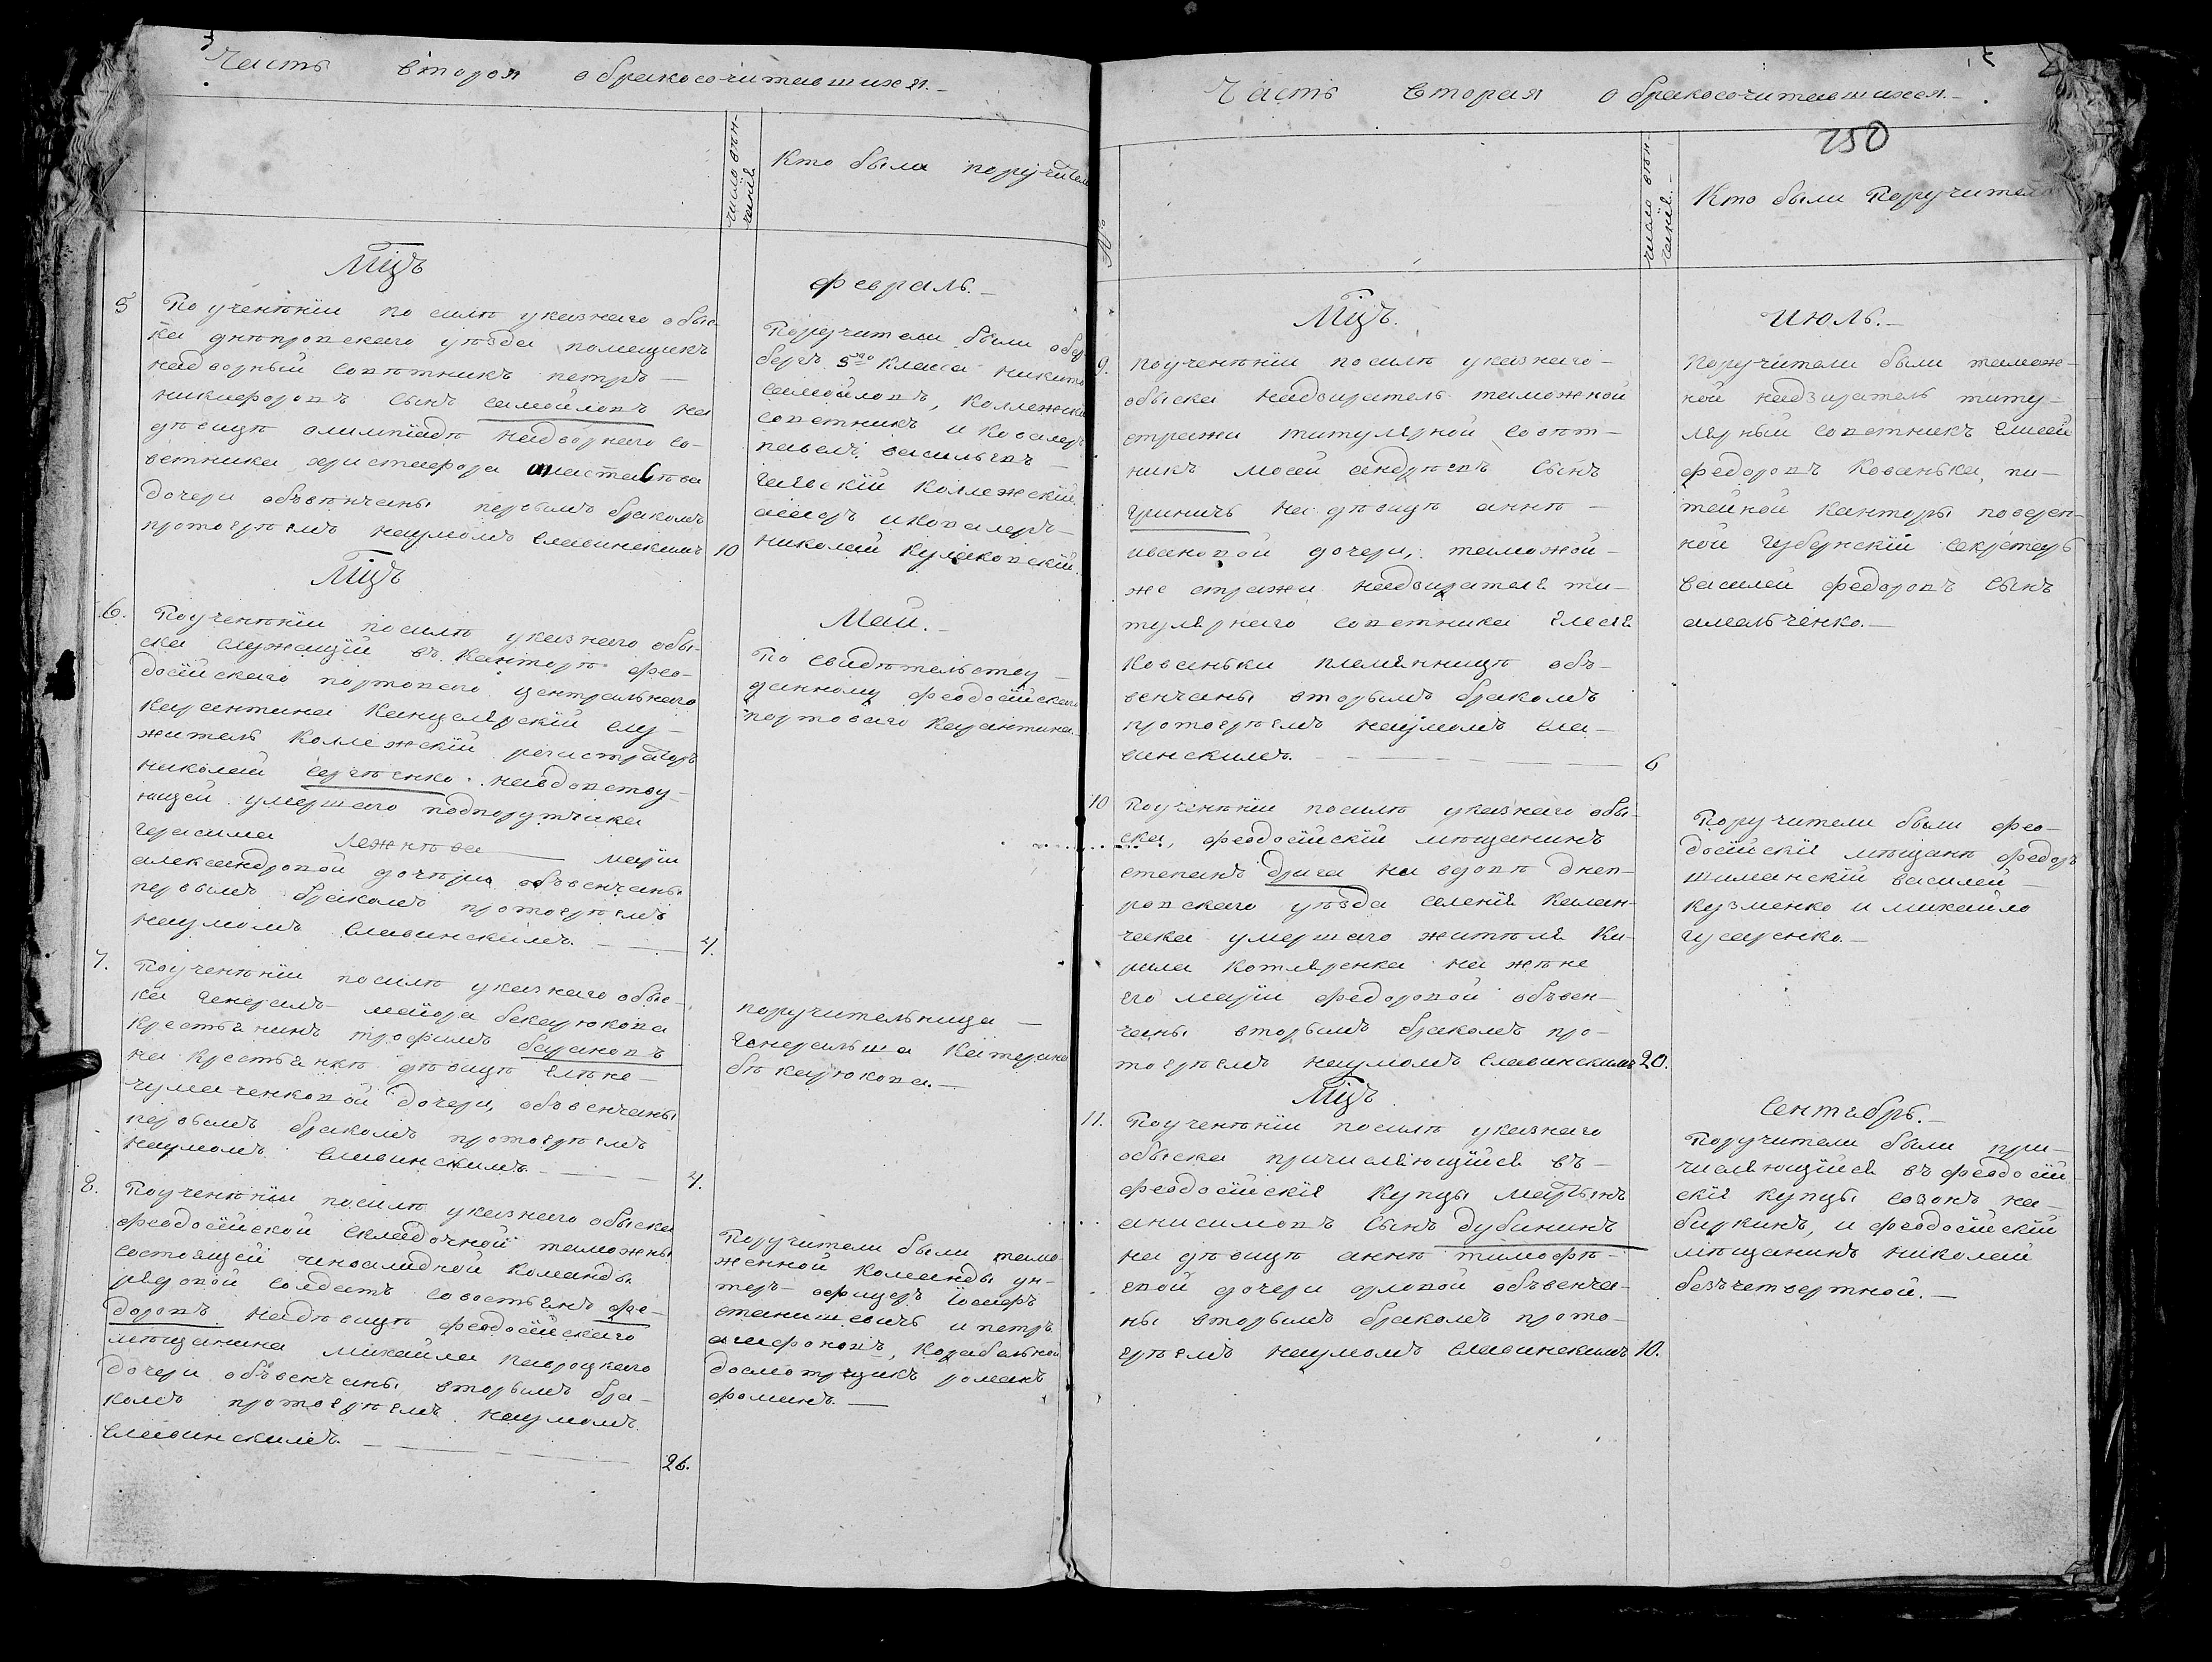 Часть вторая о бракосочитавшихся.
число вѣн-
чаній
Кто были поручител
Мцъ
февраль.
5 По учененіи по силѣ указнаго обыс-
ка днѣпровскаго уѣзда помещикъ
надворный совѣтникъ петръ
никифоровъ сынъ самойловъ на
дѣвицѣ олимпіадѣ надворнаго со-
ветника христафора
дочери объвѣнчаны первымъ бракомъ
протоереѣмъ наумомъ славинскимъ 10
Поручители были обер
бергъ 5го класса никита
самойловъ, коллежскій
советникъ и кавалеръ
павелъ васильевъ
гаевскій коллежскій
асесоръ и ковалеръ
николай кулаковскій.
Мцъ
Май.
6. По учененіи по силѣ указнаго обы-
ска служащій въ канторѣ фео-
досійскаго портоваго центральнаго
карантина канцелярскій слу-
житель коллежскій регистраторъ
николай сергѣенко на вдовствую-
ющей умершаго подпорутчика
герасима лежнѣва маріи
александровой дочѣри объвенчаны
первымъ бракомъ протоерѣемъ
наумомъ славинскимъ. 4.
По свидѣтельству
данному феодосійскаго
портоваго карантина
7. По учененіи по силѣ указнаго обыс-
ка генералъ маіора бекарюкова
крестьянинъ трофимъ барановъ
на крестьянкѣ дѣвицѣ елѣне
чумаченковой дочери, объвенчаны
первымъ бракомъ протоерѣемъ
наумомъ славинскимъ 4.
поручительница
генеральша катерина
бѣкарюкова.
8. По учененіи по силѣ указнаго обыска
феодосійской складочной таможны
состоящей инвалидной команды
рядовой солдатъ савостьянъ фе-
доровъ на дѣвицѣ феодосійскаго
мѣщанина михайла навроцкаго
дочери объвенчаны вторымъ бра-
комъ протоерѣемъ наумомъ
славинскимъ. 26.
Поручители были тамо-
женной команды ун-
теръ-офицеръ іосифъ
станишевичъ и петръ
агафоновъ, карабельной
досмотрщикъ романъ
фоминъ.
Часть вторая о бракосочитавшихся.
250
№
число вѣн-
чаній.
Кто были Поручители
Мцъ.
Июль.
9. По учененіи по силѣ указнаго
обыска надзиратель таможной
стражи титулярной совѣт-
никъ мосей андрѣевъ сынъ
гриничъ на дѣвицѣ аннѣ
ивановой дочери, таможной
же стражи надзирателя ти-
тулярнаго советника елесея
кованьки племянницѣ объ-
венчаны вторымъ бракомъ
протоерѣемъ наумомъ сла-
винскимъ. 6
Поручители были тамож-
ной надзиратель титу-
лярный советникъ елисей
федоровъ кованька, пи-
тейной канторы поверен-
ной губернскій секретарь
василей федоровъ сынъ
амельченко.
10 По учененіи по силѣ указнаго обы-
ска, феодосійскій мѣщанинъ
степанъ драга на вдовѣ днеп-
ровскаго уѣзда селенія калан-
чака умершаго житѣля ки-
рила котляренка на жѣне
его маріи федоровой объвен-
чаны вторымъ бракомъ про-
тоерѣемъ наумомъ славинскимъ 20.
Поручители были фео-
досійскія мѣщанѣ федоръ
шиманскій василей
кузменко и михайло
гусаренко.
Мцъ
Сентябрь.
11. По учененіи по силѣ указнаго
обыска причисляющійся въ
феодосійскія купцы мартынъ
анисимовъ сынъ дубининъ
на дѣвицѣ аннѣ тимофѣ-
евой дочери орловой объвенча-
ны вторымъ бракомъ прото-
ерѣемъ наумомъ славинскимъ 10.
Поручители были при-
числяющійся въ феодосій-
скія купцы созонъ на-
биркинъ, и феодосійскій
мѣщанинъ николай
безъчетвертной.